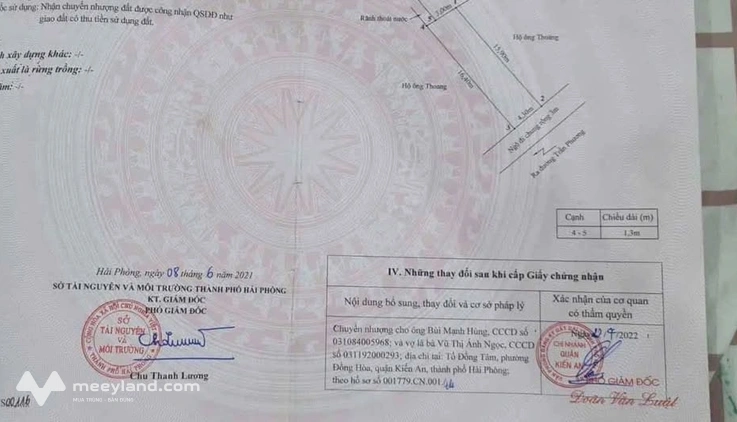 ốc sử dụng: Nhận chuyển nhượng đất được công nhận QSDĐ như
giao đất có thu tiền sử dụng đất.
h xây dựng khác: -/-
xuất là rừng trồng: -/-
ăm: -/-
Rãnh thoát nước
5
2,00m
4
Hộ ông Thoang
15,90m
16,40m
Hộ ông Thoang
4,30m
2
3
Ngõ đi chung rộng 3m
Ra đường Trần Phương
Cạnh
Chiều dài (m)
4 - 5
1,3m
Hải Phòng, ngày 08 tháng 6 năm 2021
SỞ TÀI NGUYÊN VÀ MÔI TRƯỜNG THÀNH PHỐ HẢI PHÒNG
KT. GIÁM ĐỐC
PHÓ GIÁM ĐỐC
SỞ
TÀI NGUYÊN
VÀ
MÔI TRƯỜNG
THÀNH PHỐ HẢI PHÒNG
Chu Thanh Lương
IV. Những thay đổi sau khi cấp Giấy chứng nhận
Nội dung bổ sung, thay đổi và cơ sở pháp lý
Xác nhận của cơ quan
có thẩm quyền
Chuyển nhượng cho ông Bùi Mạnh Hùng, CCCD số
031084005968; và vợ là bà Vũ Thị Ánh Ngọc, CCCD
số 031192000293; địa chỉ tại: Tổ Đồng Tâm, phường
Đồng Hòa, quận Kiến An, thành phố Hải Phòng;
theo hồ sơ số 001779.CN.001
Ngày
/2022
CHI NHÁNH
QUẬN
KIẾN AN
PHÓ GIÁM ĐỐC
Đoàn Văn Luật
meeyland.com
MUA TRÚNG - BÁN ĐÚNG